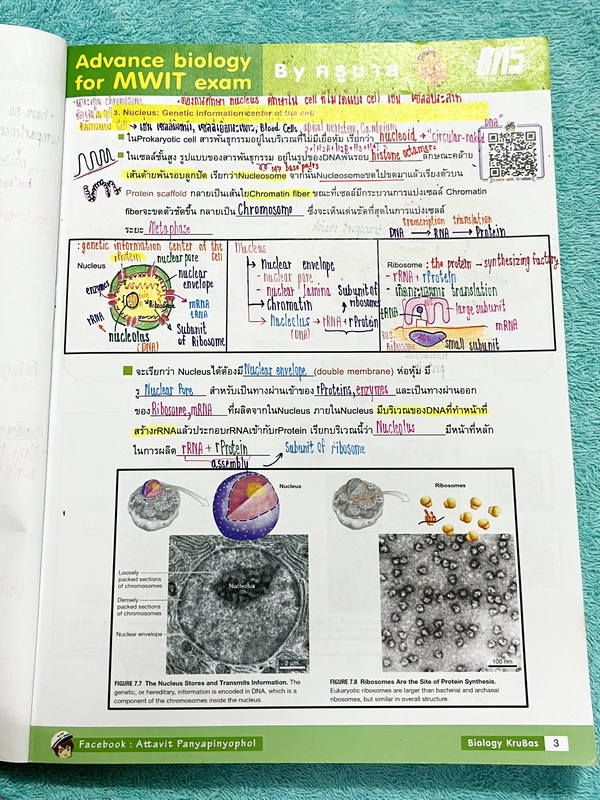 Advance biology
for MWIT exam
By ครูบาส
BNS
3. Nucleus: Genetic information center of the cell
ในProkaryotic cell สารพันธุกรรมอยู่ในบริเวณที่ไม่มีเยื่อหุ้ม เรียกว่า nucleoid → "circular-naked DNA"
ในเซลล์ชั้นสูง รูปแบบของสารพันธุกรรม อยู่ในรูปของDNAพันรอบ histone octamer ลักษณะคล้าย
เส้นด้ายพันรอบลูกปัด เรียกว่าNucleosome จากนั้นNucleosomeขดไปขดมาแล้วเรียงตัวบน
Protein scaffold กลายเป็นเส้นใยChromatin fiber ขณะที่เซลล์มีกระบวนการแบ่งเซลล์ Chromatin
fiberจะขดตัวชัดขึ้น กลายเป็น Chromosome ซึ่งจะเห็นเด่นชัดที่สุดในการแบ่งเซลล์
ระยะ Metaphase
transcription translation
DNA → RNA → Protein
: genetic information center of the cell
Nucleus
rProtein
nuclear pore
nuclear envelope
enzymes
Ribosome
mRNA
tRNA
rRNA
nucleolus
(DNA)
Subunit of Ribosome
Nucleus
→ Nuclear envelope
- nuclear pore
- nuclear lamina
→ Chromatin
→ Nucleolus → rRNA + rProtein
(DNA)
Subunit of ribosome
Ribosome : the protein - synthesizing factory
- rRNA + rProtein
translation
tRNA
large subunit
mRNA
Ribosome
small subunit
จะเรียกว่า Nucleusได้ต้องมี Nuclear envelope (double membrane) ห่อหุ้ม มี
รู Nuclear Pore สำหรับเป็นทางผ่านเข้าของ rProteins, enzymes และเป็นทางผ่านออก
ของ Ribosome, mRNA ที่ผลิตจากในNucleus ภายในNucleus มีบริเวณของDNAที่ทำหน้าที่
สร้างrRNAแล้วประกอบrRNAเข้ากับrProtein เรียกบริเวณนี้ว่า Nucleolus มีหน้าที่หลัก
ในการผลิต rRNA + rProtein Subunit of ribosome
assembly
Nucleus
Ribosomes
Loosely packed sections of chromosomes
Nucleolus
Densely packed sections of chromosomes
Nuclear envelope
2 µm
100 nm
FIGURE 7.7 The Nucleus Stores and Transmits Information. The
genetic, or hereditary, information is encoded in DNA, which is a
component of the chromosomes inside the nucleus.
FIGURE 7.8 Ribosomes Are the Site of Protein Synthesis.
Eukaryotic ribosomes are larger than bacterial and archaeal
ribosomes, but similar in overall structure.
Facebook : Attavit Panyapinyophol
Biology KruBas 3